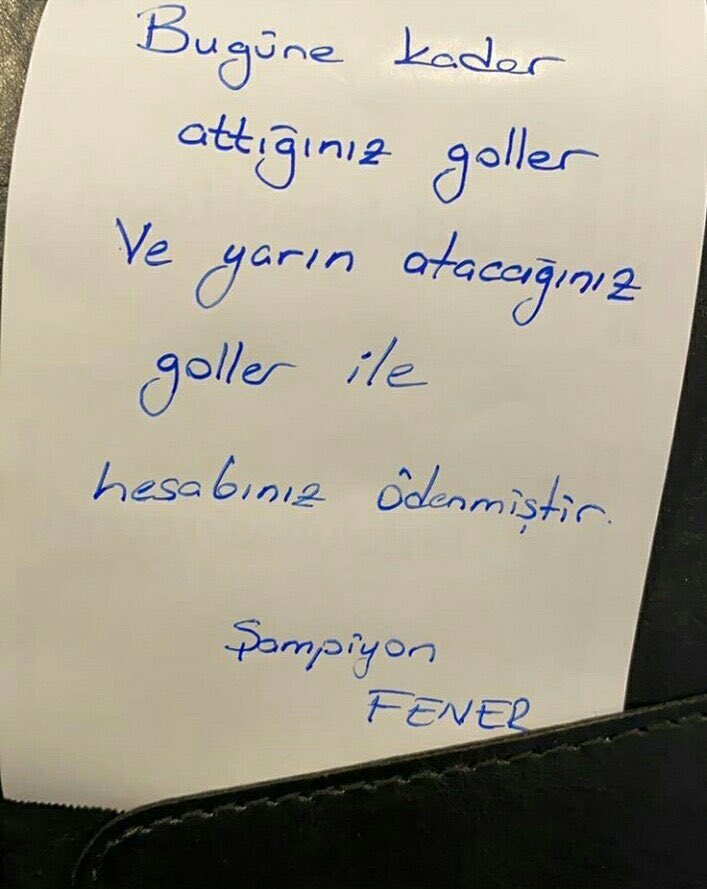 Bugüne kadar
attığınız goller
Ve yarın atacağınız
goller ile
hesabınız ödenmiştir.
Şampiyon
FENER